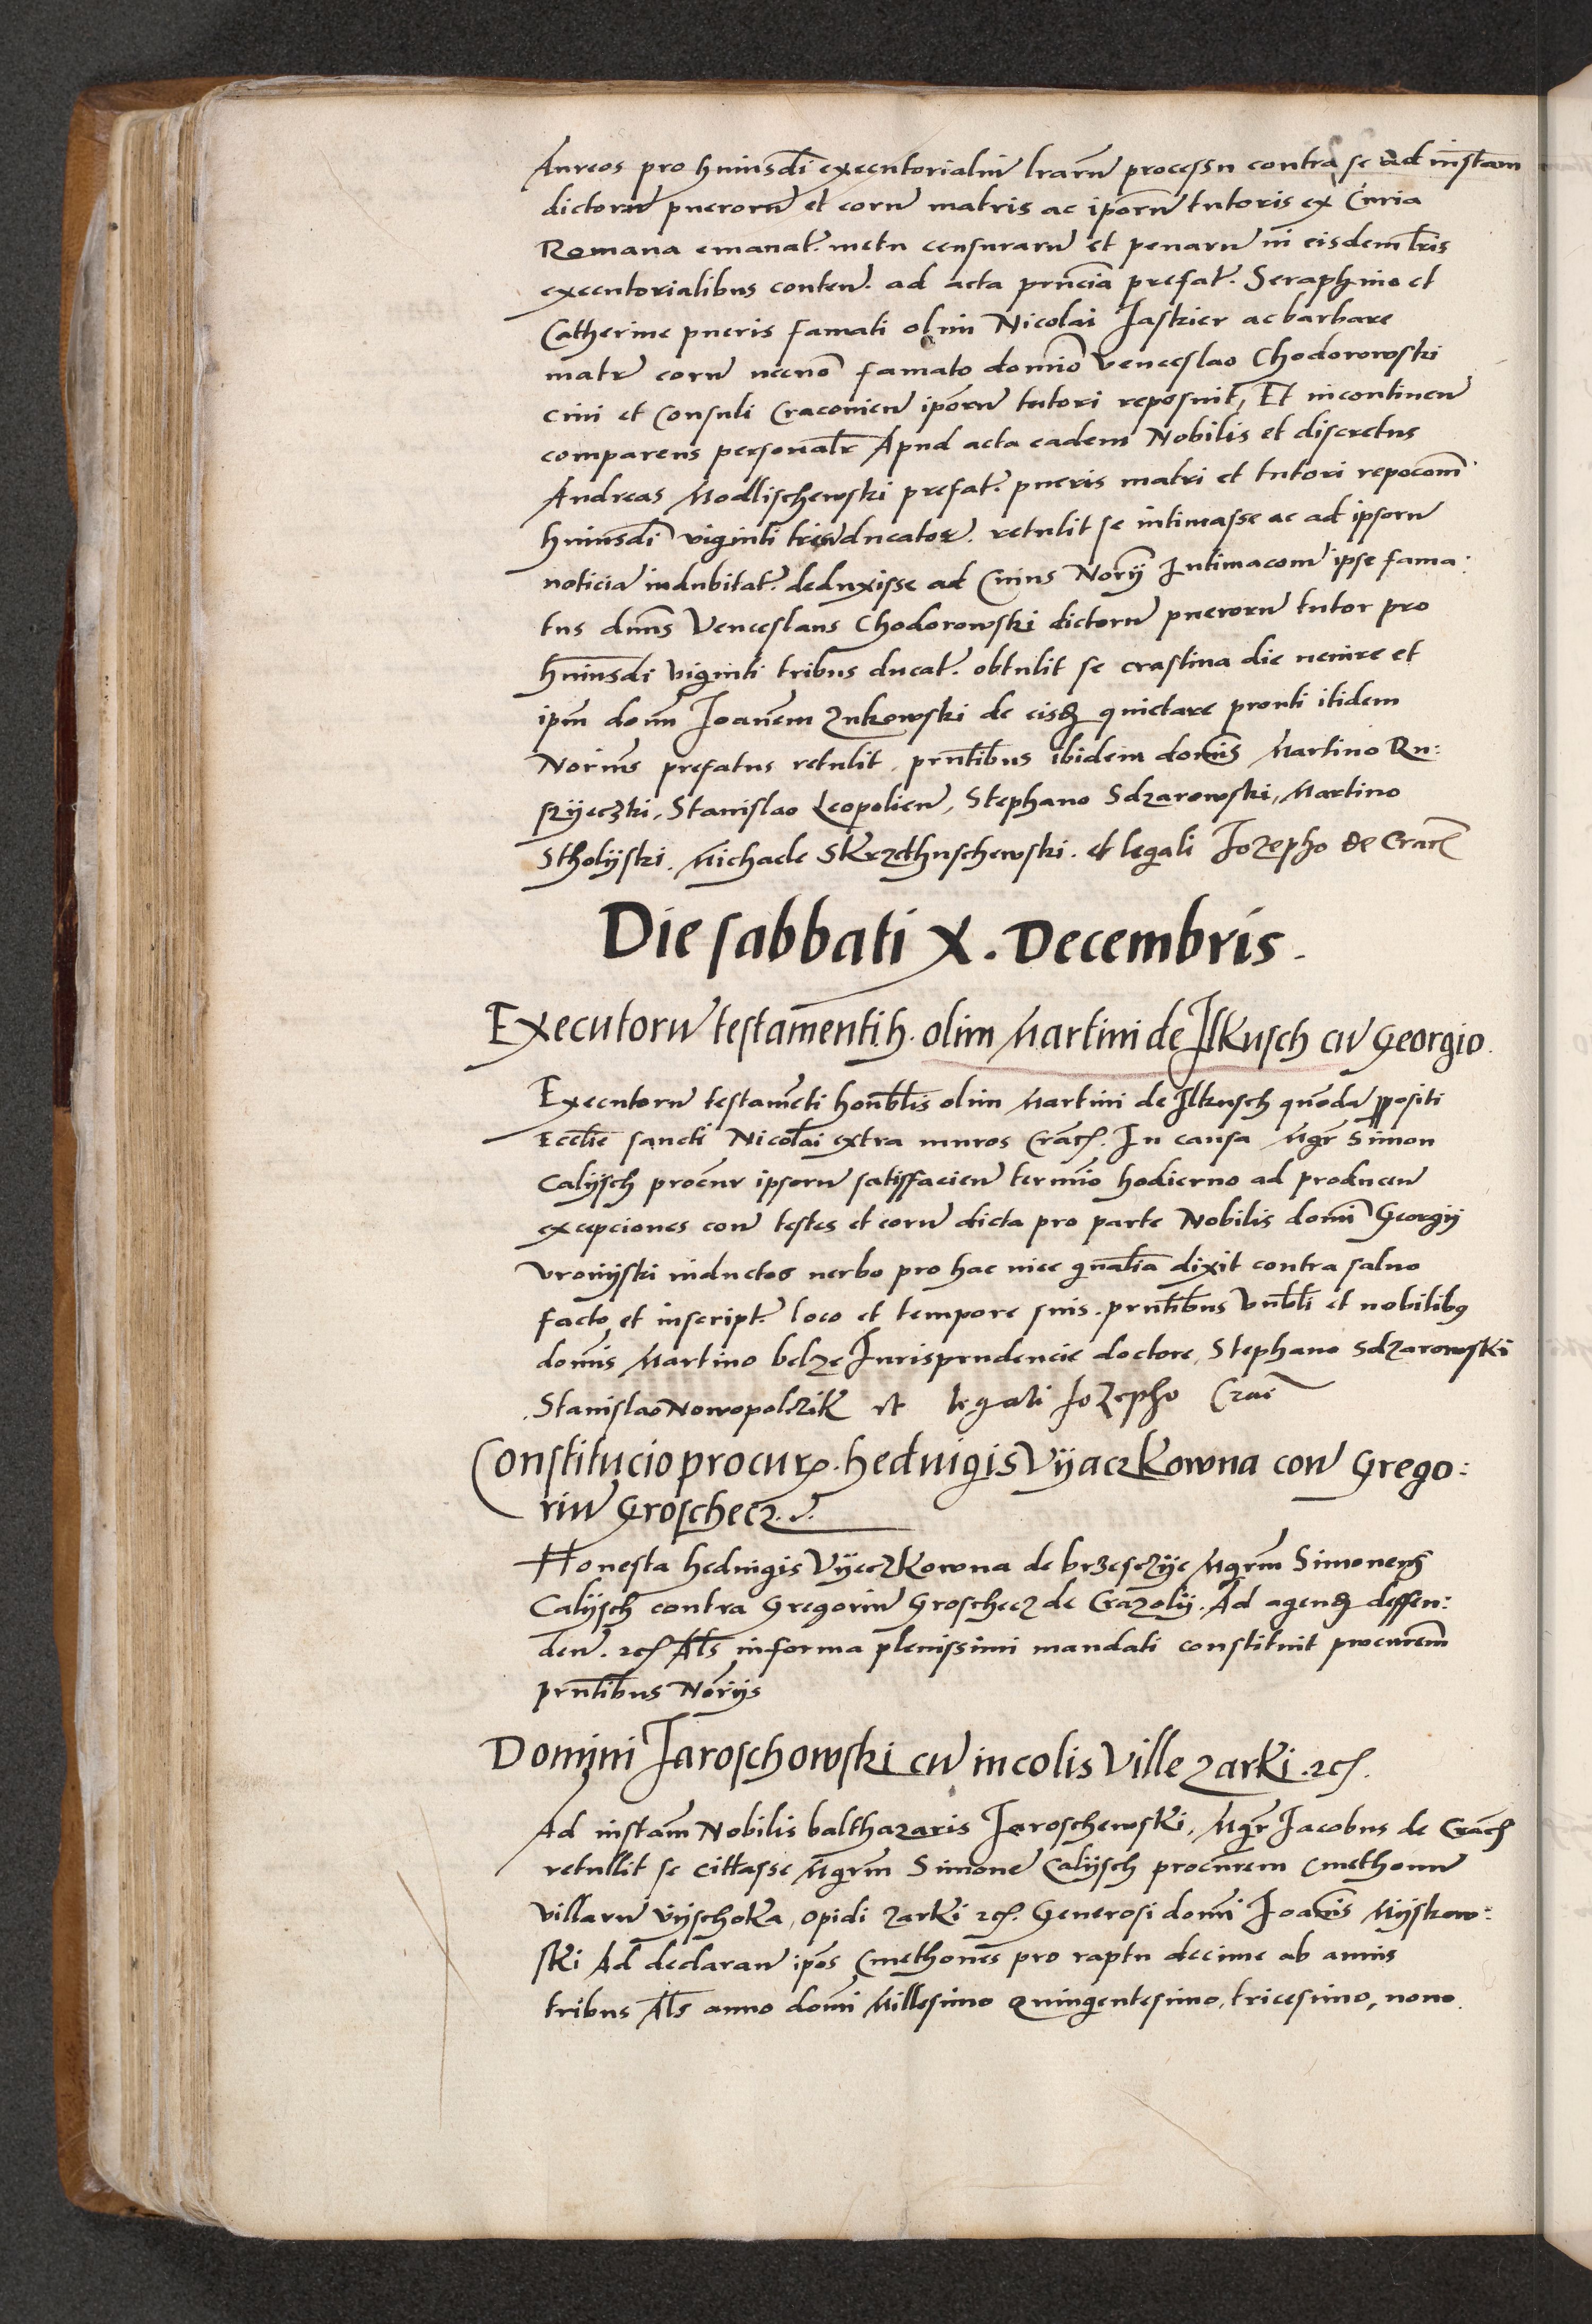 Aureos pro huiusdi executorialiu̅ lraru̅ processu contra se ad instam
dictoru̅ pueroru̅ et eoru̅ matris ac ip̅oru̅ tutoris ex Curia
Romana emanat. metu censuraru̅ et penaru̅ in eisdem lr̅is
executorialibus conten̅. ad acta pn̅cia prefat. Seraphino et
Catherine pueris famati olim Nicolai Jaskier ac barbare
matr̅ eoru̅ necno̅ famato domi̅o Venceslao Chodorowski
ciui et Consuli Cracouien̅ ip̅oru̅ tutori reposuit, Et incontinen̅
comparens personalr̅ Apud acta eadem Nobilis et discretus
Andreas Modlischewski prefat. pueris matri et tutori repocom̅
huiusdi̅ viginti triu̅ ducator. retulit se intimasse ac ad ipsoru̅
noticia̅ indubitat. deduxisse ad Cuius Nor̅ij Intimacom̅ ipse fama:
tus dn̅us Venceslaus Chodorowski dictoru̅ pueroru̅ tutor pro
huiusdi̅ viginti tribus ducat. obtulit se crastina die uenire et
ip̅m dom̅ Joan̅em Zukowski de eisd quietare prouti itidem
Norius̅ prefatus retulit. prn̅tibus ibidem domi̅s Martino Ru:
szyeczki, Stanislao Leopolien̅, Stephano Sdzarowski, Martino
Stholijski. Michaele Skrzethuschewski. et legali Jozepho de Crac̅
Die sabbati X. Decembris.
Executoru̅ testamenti h. olim Martini de Ilkusch cu̅ Georgio.
Executoru̅ testame̅ti hon̅bl̅is olim Martini de Ilkusch quo̅da̅ p̅positi
Eccl̅ie sancti Nicolai extra muros Crac̅. In causa Mgr̅ Simon
Calijsch procur̅ ipsoru̅ satisfacien̅ termi̅o hodierno ad producen̅
excepciones con̅ testes et eoru̅ dicta pro parte Nobilis domi̅ Georgij
Vronijski inductos uerbo pro hac uice gn̅alia dixit contra saluo
facto et inscript. loco et tempore suis. prn̅tibus Vn̅bli et nobilibus
domi̅s Martino belze Jurisprudencie doctore, Stephano Sdzarowski
Stanislao Nowopolczik et legali Jozepho Crac̅
Constitucio procur. heduigis Vijaczkowna con̅ Grego:
riu̅ Groschecz.
Honesta heduigis Vijeczkowna de brzesczije Mgr̅m Simonem
Calijsch contra Gregoriu̅ Groschecz de Crazolij. Ad agend deffen:
den̅. zc̅ Als̅ in forma plenissimi mandati constituit procurem̅
prn̅tibus Nor̅ijs
Domini Jaroschowski cu̅ incolis Ville Zarki. zc̅.
Ad instam̅ Nobilis balthazaris Jaroschewski, Mgr̅ Jacobus de Crac̅
retullit se cittasse Mgr̅m Simone̅ Calijsch procurem̅ Cmethonu̅
villaru̅ Vijschoka, Opidi Zarki zc̅. Generosi domi̅ Joan̅is Mijskow:
ski Ad declaran̅ ip̅os Cmethones pro raptu decime ab annis
tribus Als̅ anno domi̅ Millesimo Quingentesimo, tricesimo, nono.